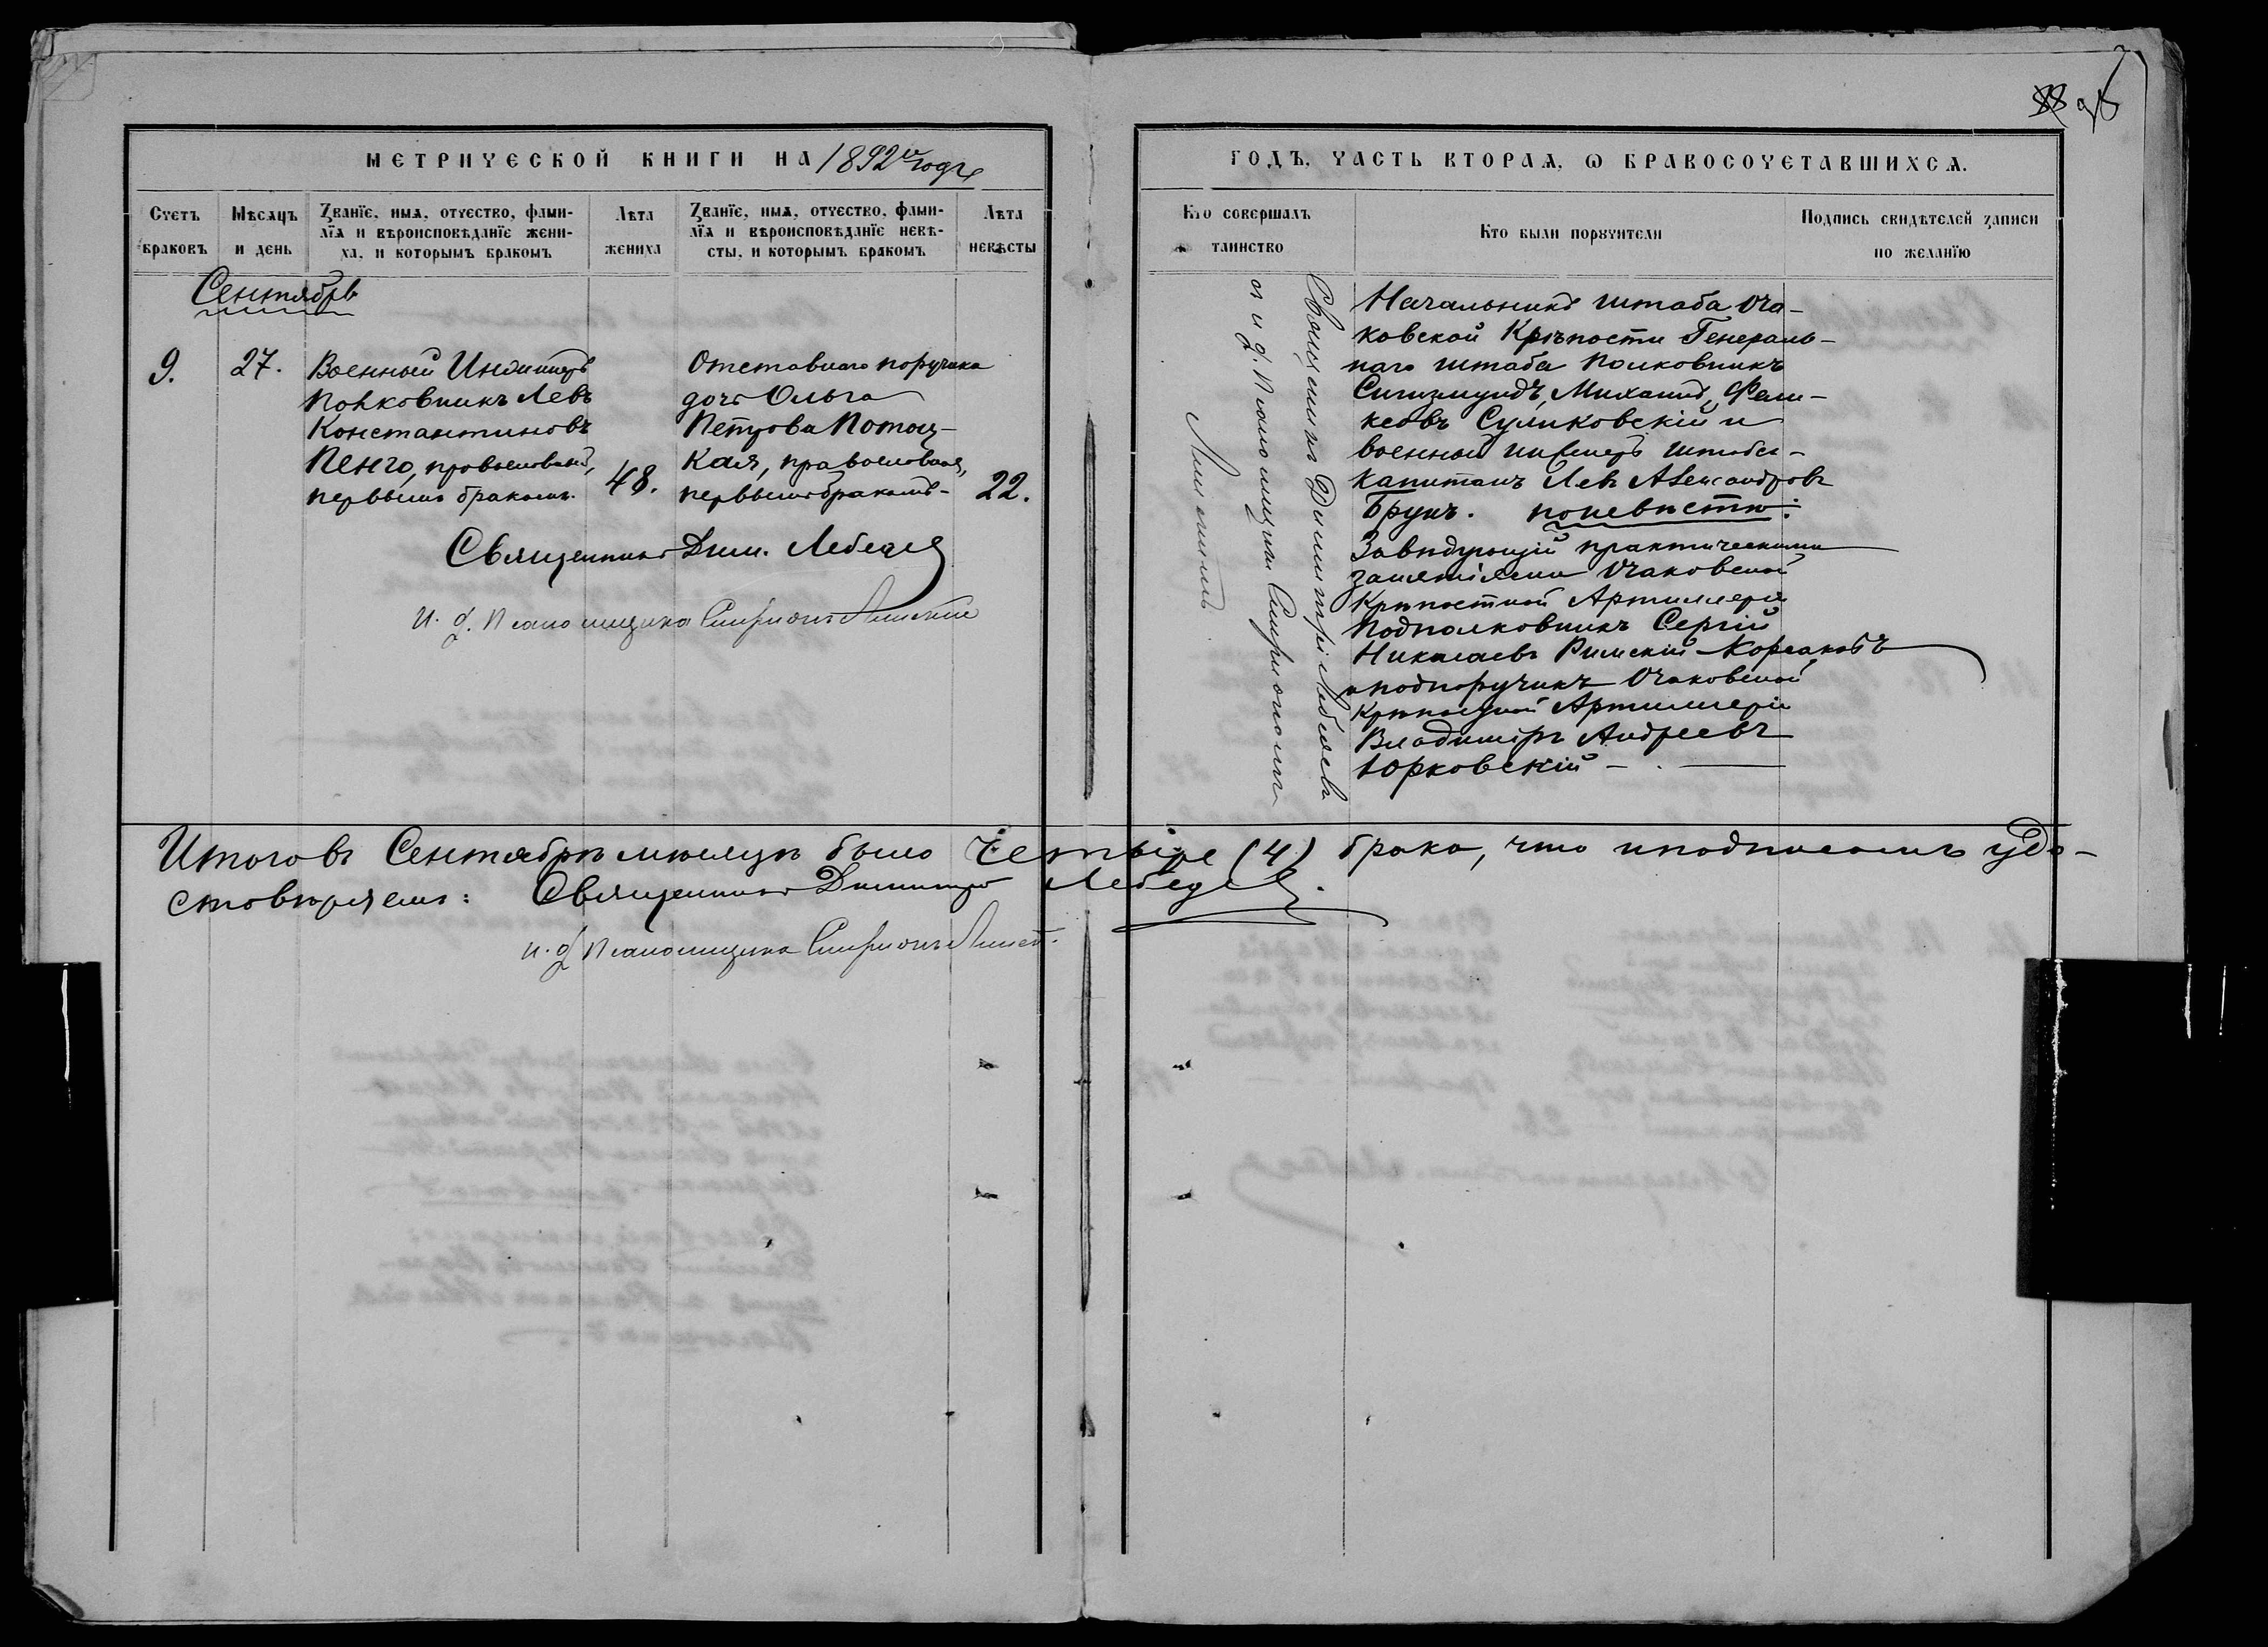 98
МЕТРИЧЕСКОЙ КНИГИ НА 1892й годъ
ГОДЪ, ЧАСТЬ ВТОРАЯ, Ѡ БРАКОСОЧЕТАВШИХСЯ.
Счетъ браковъ
Мѣсяцъ и день
Званїе, имя, отчество, фами-
лїя и вѣроисповѣданїе жени-
ха, и которымъ бракомъ
Лѣта жениха
Званїе, имя, отчество, фами-
лїя и вѣроисповѣданїе невѣ-
сты, и которымъ бракомъ
Лѣта невѣсты
Кто совершалъ таинство
Кто были порꙋчители
Подпись свидѣтелей записи
по желанїю
Сентябрь
9.
27.
Военный Инженеръ
Полковникъ Левъ
Константиновъ
Пенго, православный,
первымъ бракомъ.
48.
Отставного поручика
дочь Ольга
Петрова Потоц-
кая, православная,
первымъ бракомъ-
22.
Священникъ Дим. Лебедев
и. д. Псаломщика Спиридонъ
Священникъ Димитрій Лебедевъ
съ и. д. Псаломщика Спиридономъ
Начальникъ штаба Оча-
ковской Крѣпости Генераль-
наго штаба Полковникъ
Сигизмундъ, Михаилъ, Фели-
ксовъ Суликовскій и
военный инженеръ штабсъ-
капитанъ Левъ Александровъ
Брунъ. по невѣстѣ:
Завѣдующій практическими
занятіями Очаковской
Крѣпостной Артиллеріи
Подполковникъ Сергій
Николаевъ Римскій-Корсаковъ
и подпоручикъ Очаковской
Крѣпостной Артиллеріи
Владиміръ Андреевъ
Юрковскій
Итого въ Сентябрѣ мѣсяцѣ было Четыре (4) брака, что и подписомъ удо-
стовѣряемъ: Священникъ Димитрій Лебедев.
и. д. Псаломщика Спиридонъ